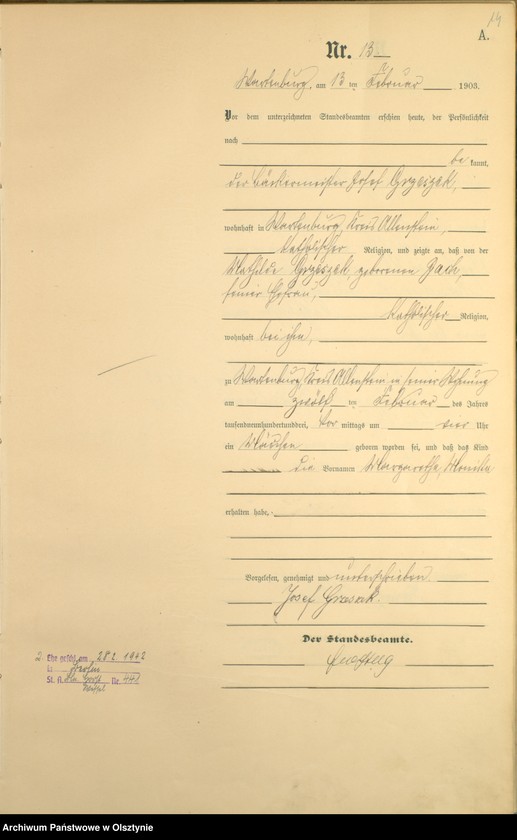 14
A.
Nr. 13
Wartenburg, am 13 ten Februar 1903.
Vor dem unterzeichneten Standesbeamten erschien heute, der Persönlichkeit
nach
be kannt,
der Bäckermeister Josef Grzeszak,
wohnhaft in Wartenburg, Kreis Allenstein,
katholischer Religion, und zeigte an, daß von der
Mathilde Grzeszak, geborenen Zach,
seiner Ehefrau,
katholischer Religion,
wohnhaft bei ihm,
zu Wartenburg, Kreis Allenstein in seiner Wohnung
am zwölf ten Februar des Jahres
tausendneunhundertunddrei, Vor mittags um vier Uhr
ein Mädchen geboren worden sei, und daß das Kind
die Vornamen Margarethe, Monika
erhalten habe.
Vorgelesen, genehmigt und unterschrieben
Josef
Der Standesbeamte.
2. Ehe geschl. am 28.2.1942
in
St. A. Nr. 441
Archiwum Państwowe w Olsztynie